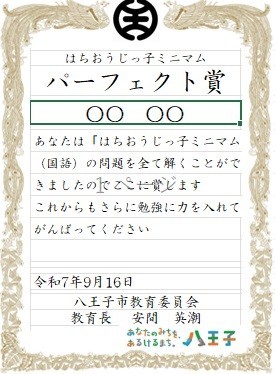 はちおうじっ子ミニマム
パーフェクト賞
○○　○○
あなたは『はちおうじっ子ミニマム
（国語）の問題を全て解くことがで
きましたのでここに賞します
これからもさらに勉強に力を入れて
がんばってください
令和7年9月16日
八王子市教育委員会
教育長　安間　英潮
あなたのみちを、
あるけるまち。八王子